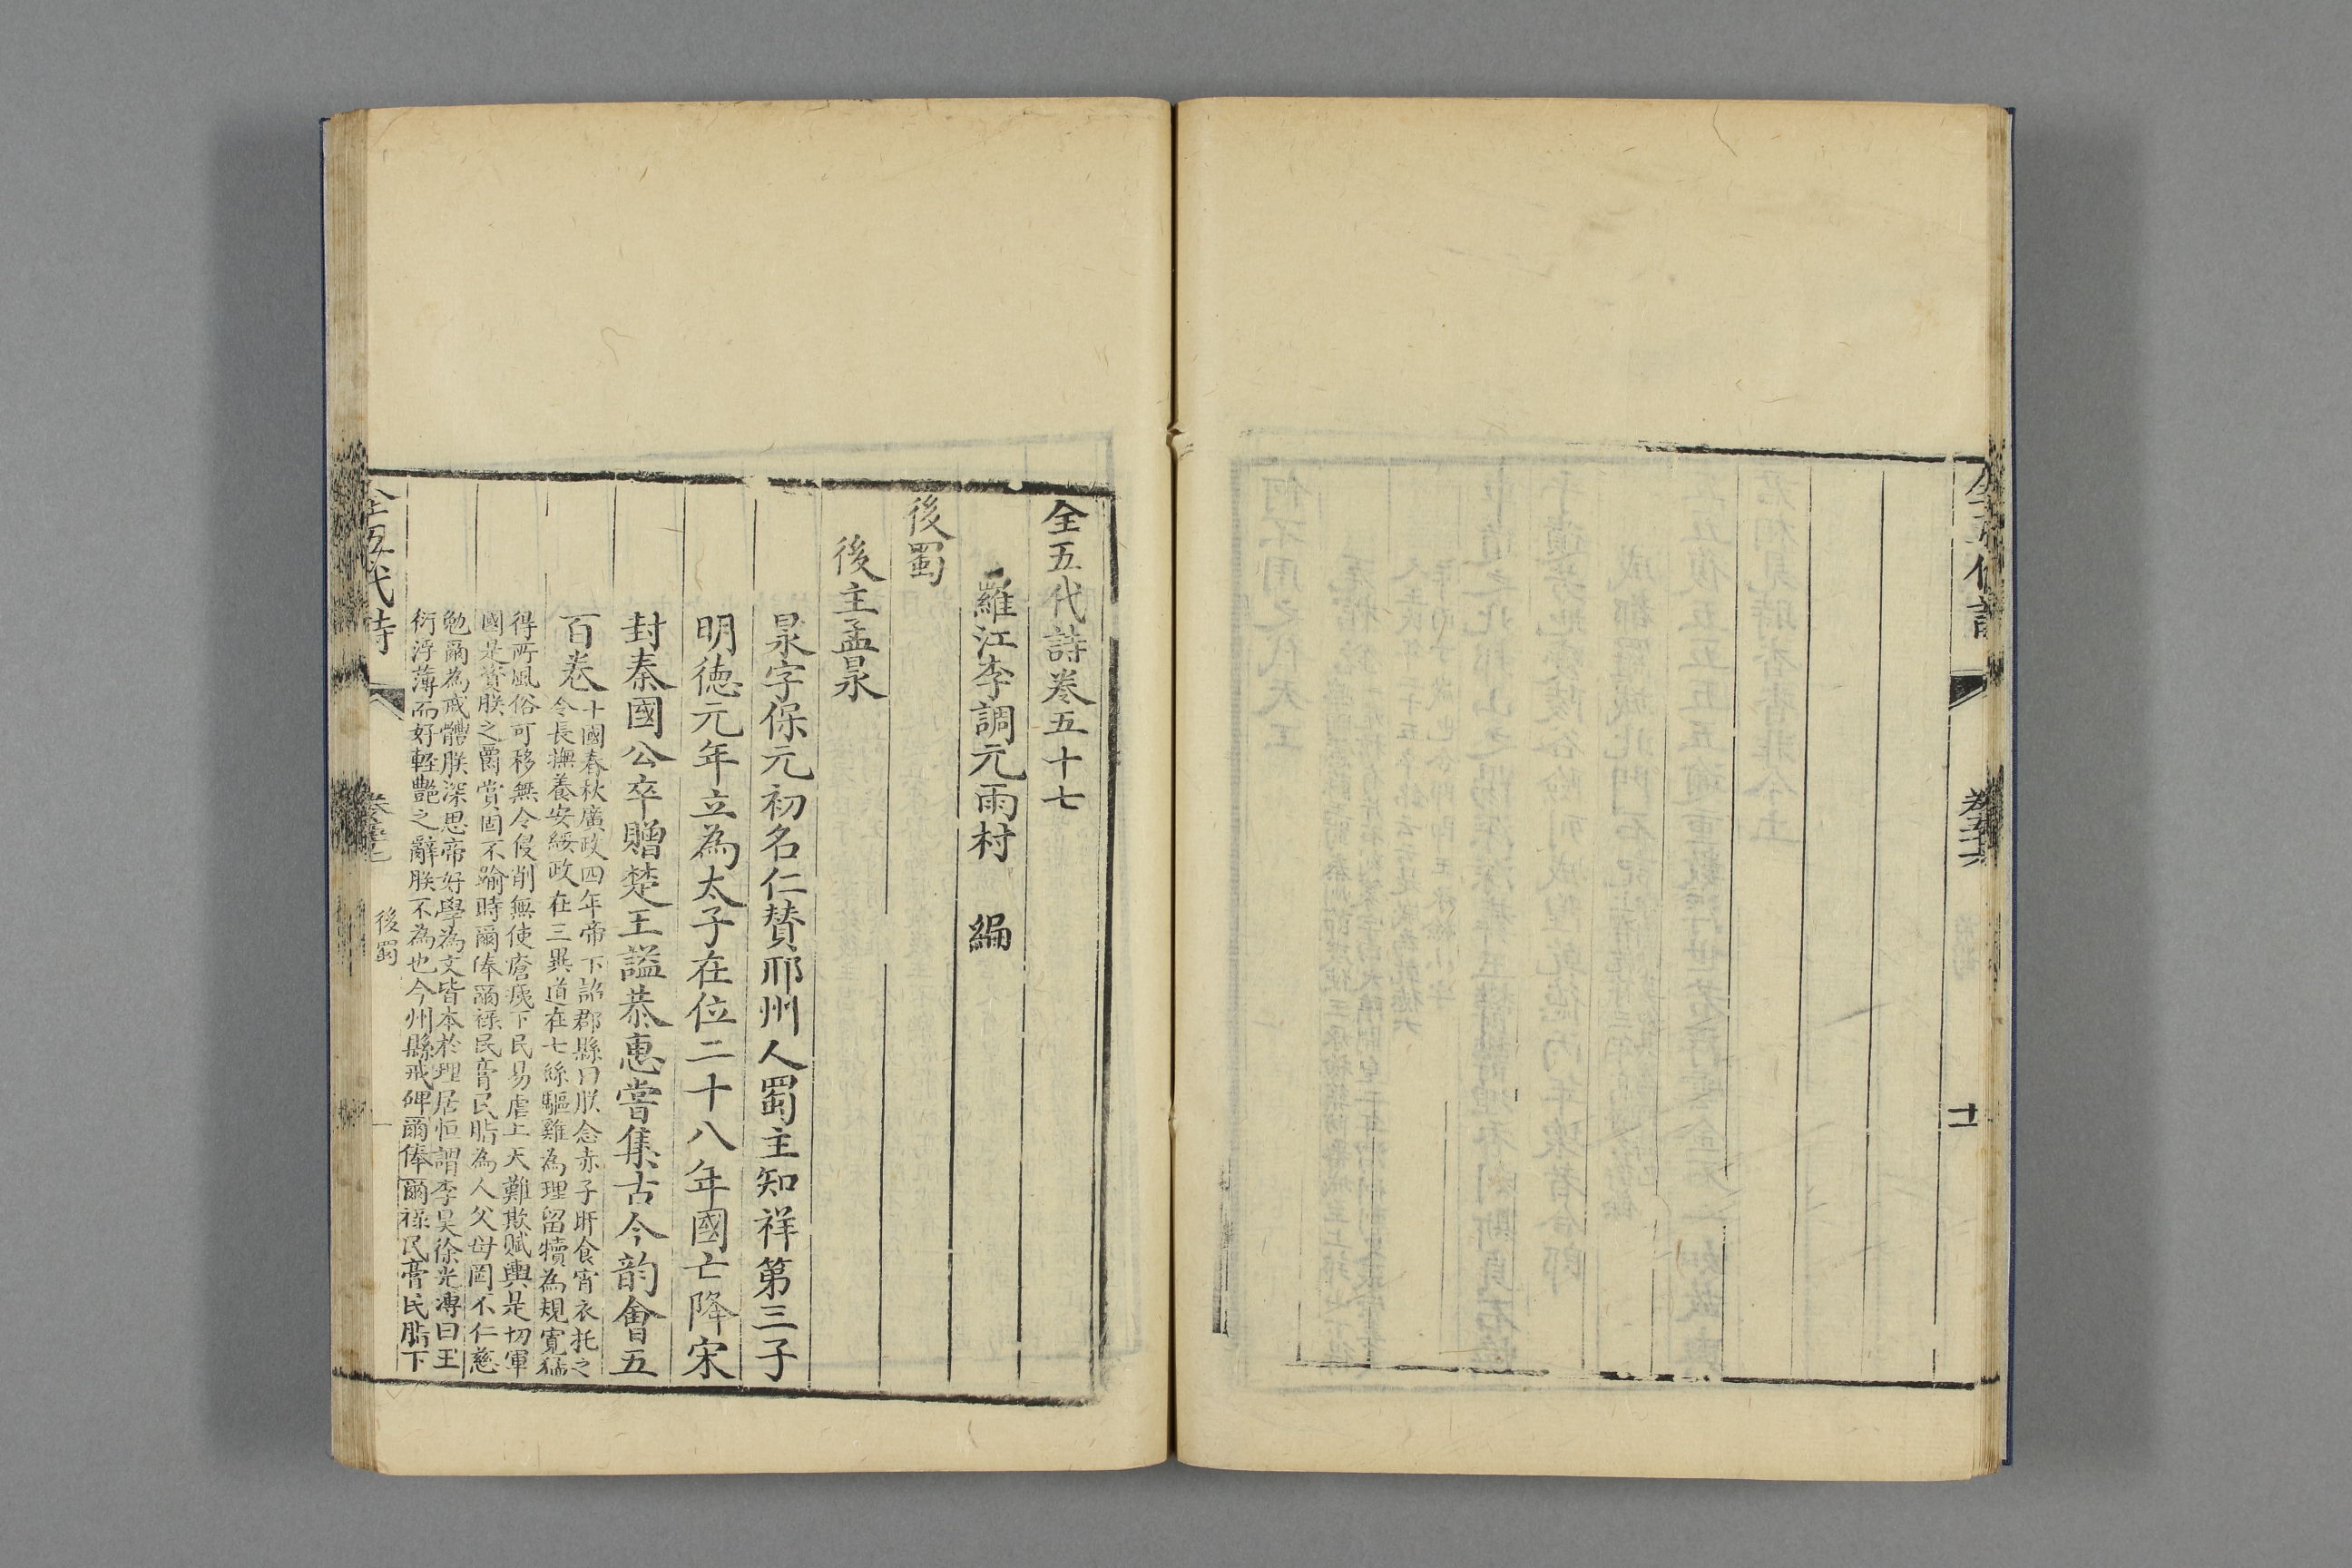 卷五十六
十一
全五代詩卷五十七
羅江李調元雨村　編
後蜀
後主孟昶
昶字保元初名仁贊邢州人蜀主知祥第三子
明德元年立為太子在位二十八年國亡降宋
封秦國公卒贈楚王謚恭惠嘗集古今韵會五
百卷
十國春秋廣政四年帝下詔郡縣曰朕念赤子旰食宵衣托之
令長撫養安綏政在三異道在七絲驅雞為理留犢為規寬猛
得所風俗可移無令侵削無使瘡痍下民易虐上天難欺賦輿是切軍
國是資朕之爵賞固不踰時爾俸爾祿民膏民脂為人父母罔不仁慈
勉爾為戒體朕深思帝好學為文皆本於理居恒謂李昊徐光溥曰王
衍浮薄而好輕艷之辭朕不為也今州縣戒碑爾俸爾祿民膏民脂下
全五代詩
後蜀
一